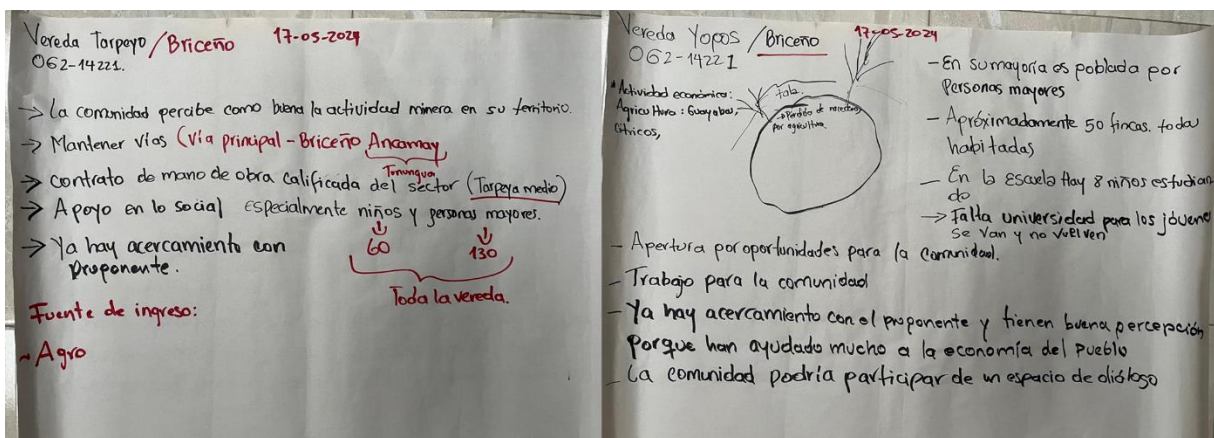 Vereda Tarpeyo / Briceño 17-05-2024
062-14221.
→ La comunidad percibe como buena la actividad minera en su territorio.
→ Mantener vías (Vía principal - Briceño Ancamay
Tununguá
→ contrato de mano de obra calificada del sector (Tarpeya medio)
→ Apoyo en lo social especialmente niños y personas mayores.
60 130
→ Ya hay acercamiento con
proponente.
Toda la vereda.
Fuente de ingreso:
~ Agro
Vereda Yopos / Briceño 17-05-2024
062-14221
* Actividad económica:
Agricultura: Guayabas,
Cítricos,
Tala.
→ Perdida de
por agricultura.
- En su mayoría es poblada por
Personas mayores
- Apróximadamente 50 fincas. todas
habitadas
- En la Escuela Hay 8 niños estudian
do
→ Falta universidad para los jóvene
se van y no vuelven
- Apertura por oportunidades para la comunidad.
- Trabajo para la comunidad
- Ya hay acercamiento con el proponente y tienen buena percepción
porque han ayudado mucho a la economía del pueblo
- La comunidad podría participar de un espacio de diálogo